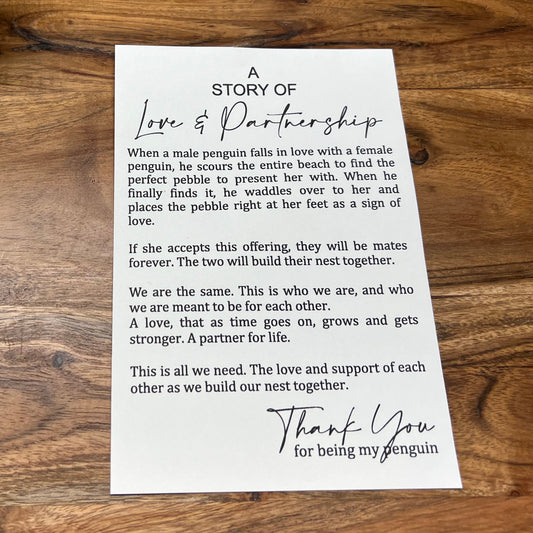 A
STORY OF
Love & Partnership
When a male penguin falls in love with a female
penguin, he scours the entire beach to find the
perfect pebble to present her with. When he
finally finds it, he waddles over to her and
places the pebble right at her feet as a sign of
love.
If she accepts this offering, they will be mates
forever. The two will build their nest together.
We are the same. This is who we are, and who
we are meant to be for each other.
A love, that as time goes on, grows and gets
stronger. A partner for life.
This is all we need. The love and support of each
other as we build our nest together.
Thank You
for being my penguin